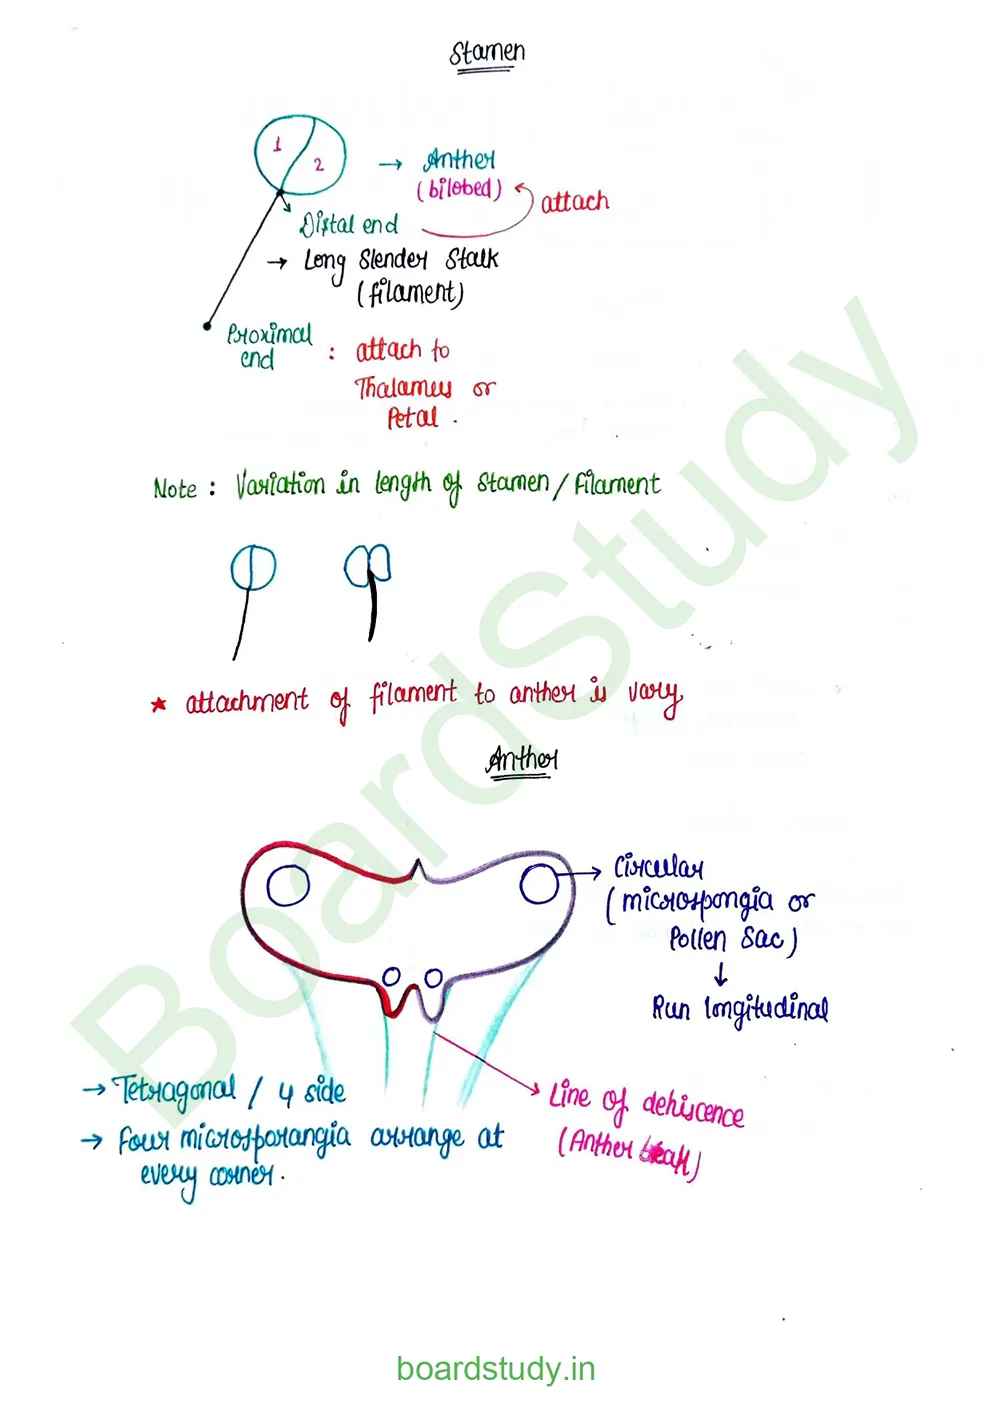 Stamen
1
2
→ Anther
(bilobed)
attach
Distal end
→ Long Slender Stalk
(filament)
Proximal
end
: attach to
Thalamus or
Petal .
Note : Variation in length of Stamen / filament
★ attachment of filament to anther is vary,
Anther
Circular
(microspongia or
Pollen Sac)
↓
Run longitudinal
→ Tetragonal / 4 side
→ four microsporangia arrange at
every corner.
Line of dehiscence
(Anther)
BoardStudy
boardstudy.in